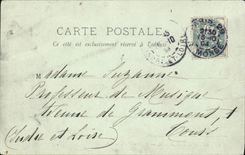 CARTE POSTALE
Ce côté est exclusivement réservé à l'adresse
Madame Suzanne
Professeur de Musique
Avenue de Grammont, 1
Tours
(Indre et Loire)